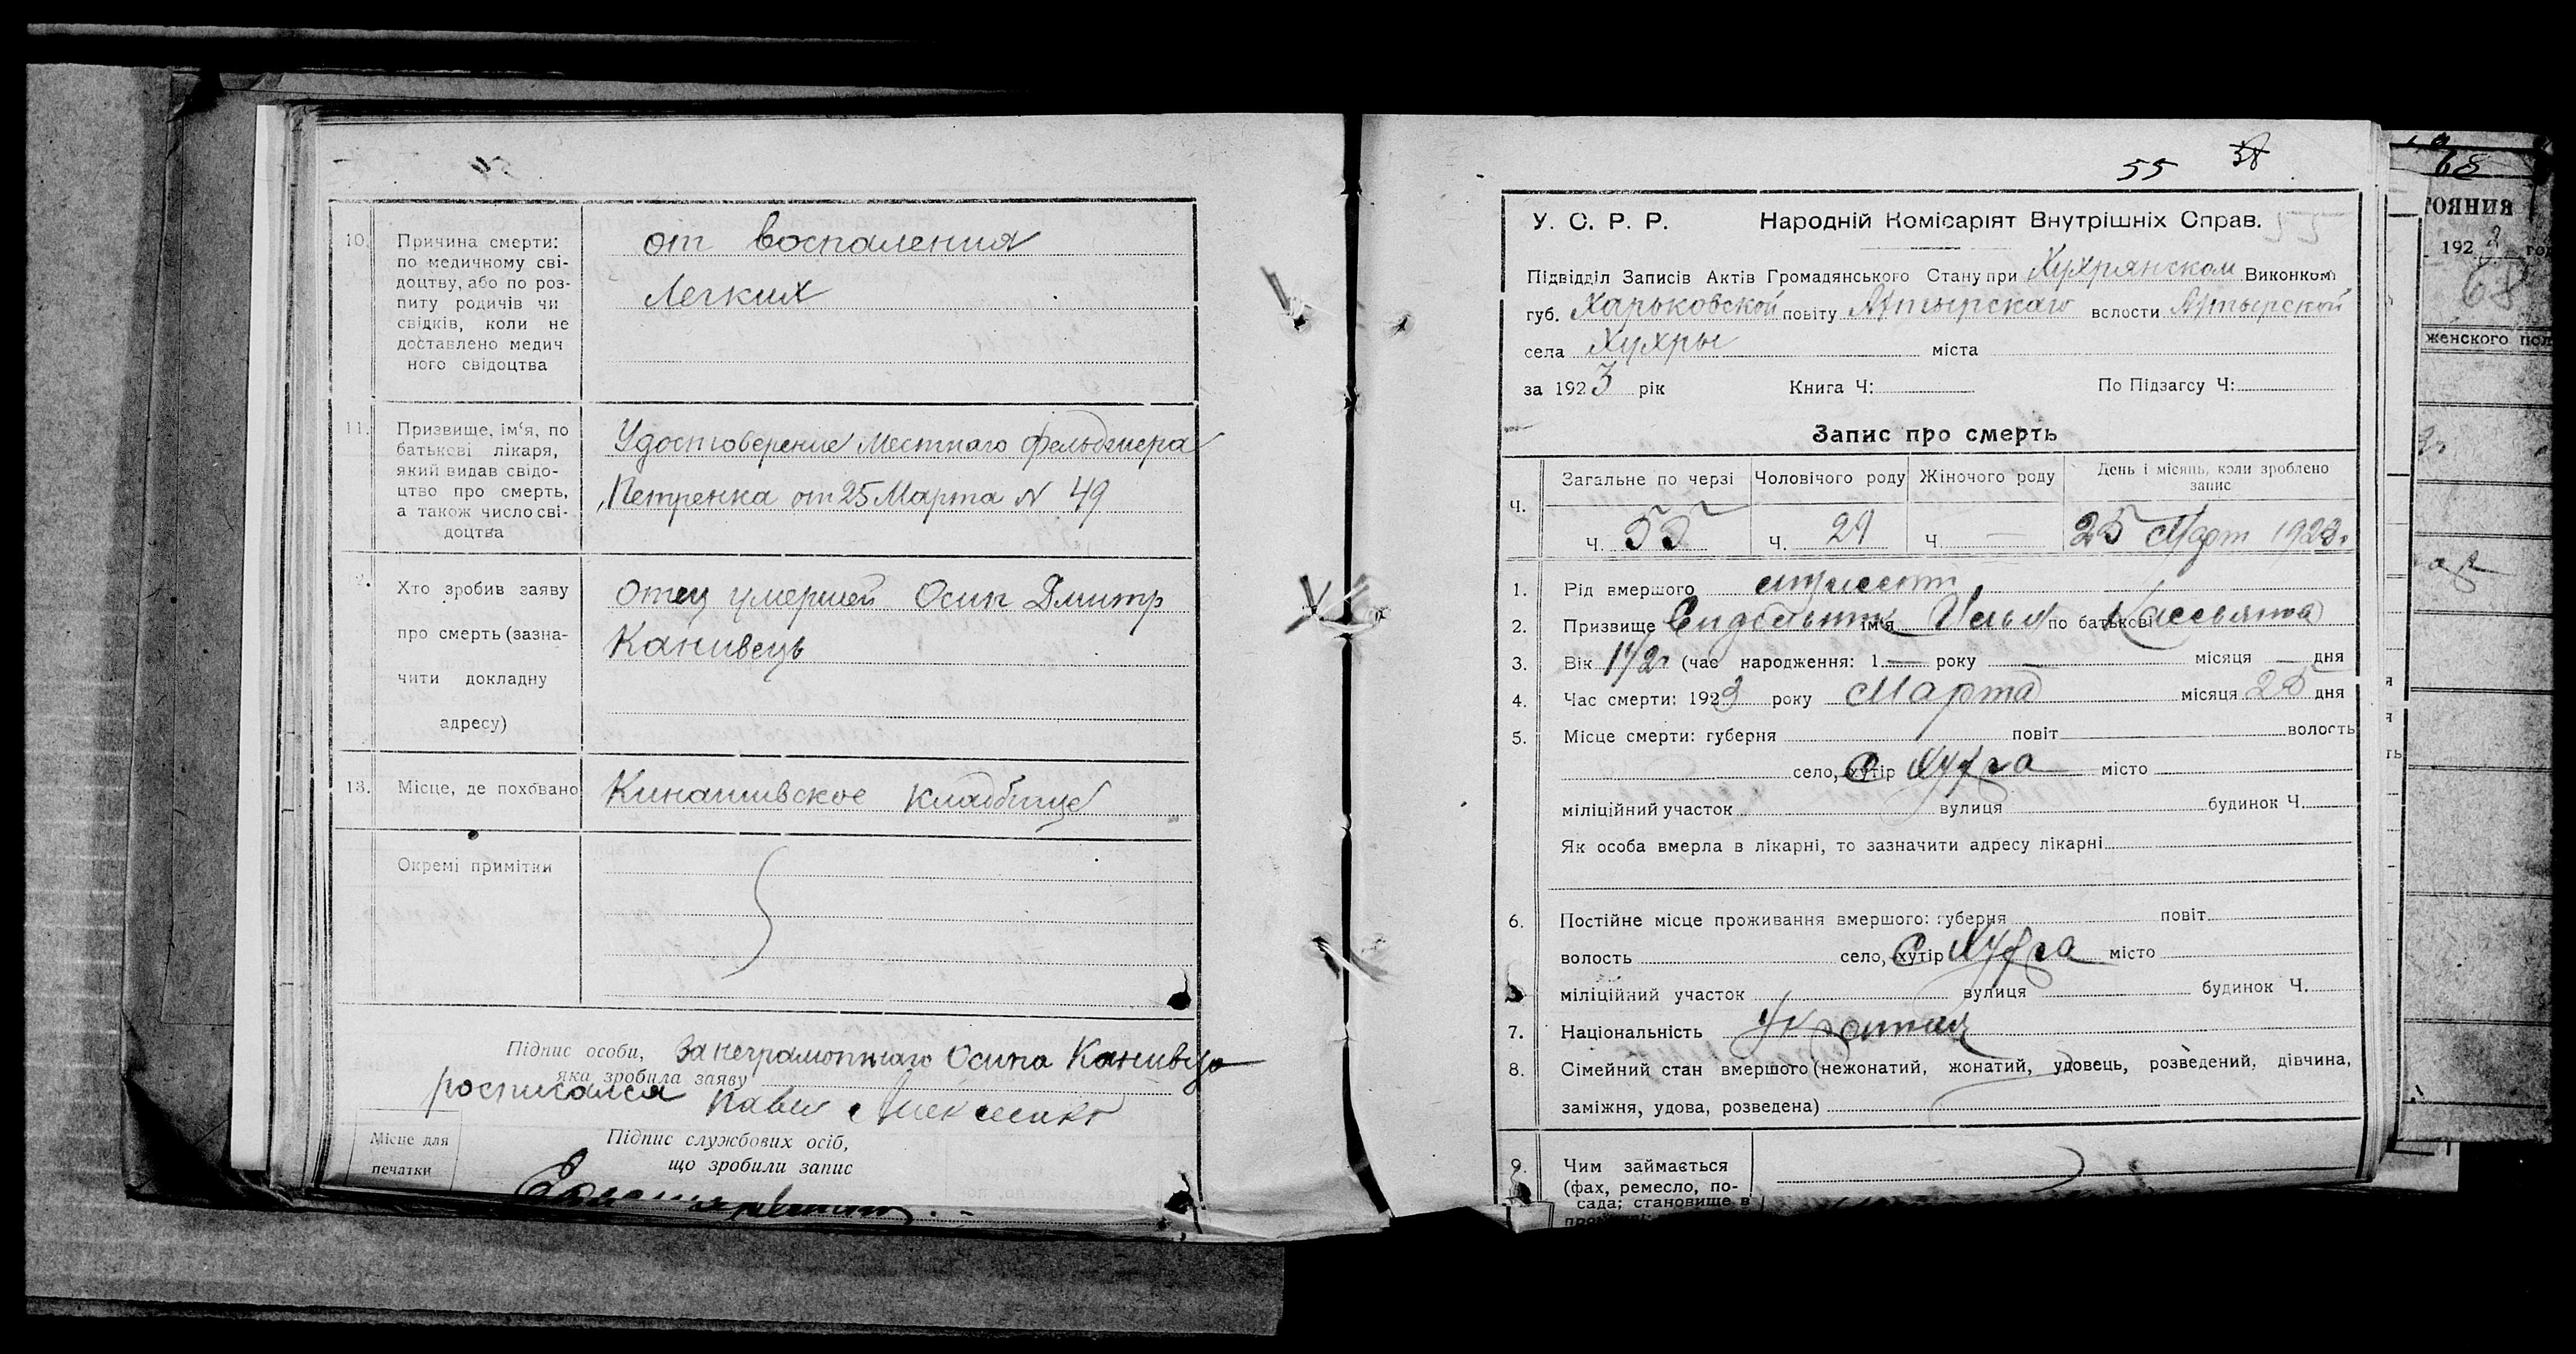 54
10. Причина смерти:
по медичному сві-
доцтву, або по роз-
питу родичів чи
свідків, коли не
доставлено медич
ного свідоцтва
от воспаления
Легких
11. Призвище, ім‘я, по
батькові лікаря,
який видав свідо-
цтво про смерть,
а також число сві-
доцтва
Удостоверение Местнаго фельдшера
Петренка от 25 Марта № 49
Хто зробив заяву
про смерть (зазна-
чити докладну
адресу)
Отец умершей Осип Дмитр
Канивець
13. Місце, де поховано
Кинашивское кладбище
Окремі примітки
Підпис особи, За неграмотнаго Осипа Канивца
яка зробила заяву
росписался Павел
Місце для
печатки
Підпис службових осіб,
що зробили запис
55 58
У. С. Р. Р. Народній Комісаріят Внутрішніх Справ. 55
Підвідділ Записів Актів Громадянського Стану при Хухрянском Виконком
губ. Харьковской повіту Ахтырскаго волости Ахтырской
села Хухры міста
за 1923 рік Книга Ч: По Підзагсу Ч:
Запис про смерть
Ч. Загальне по черзі Чоловічого роду Жіночого роду День і місяць, коли зроблено
запис
Ч. 55 Ч. 29 Ч. — 25 Март 1923г.
1. Рід вмершого
2. Призвище ім‘я по батькові
3. Вік 1 1/2 г (час народження: 1 — року — місяця — дня
4. Час смерти: 1923 року Марта місяця 25 дня
5. Місце смерти: губерня повіт волость
село, хутір Хухра місто
міліційний участок вулиця будинок Ч.
Як особа вмерла в лікарні, то зазначити адресу лікарні
6. Постійне місце проживання вмершого: губерня повіт
волость село, хутір Хухра місто
міліційний участок вулиця будинок Ч.
7. Національність
8. Сімейний стан вмершого (нежонатий, жонатий, удовець, розведений, дівчина,
заміжня, удова, розведена)
9. Чим займається
(фах, ремесло, по-
сада; становище в
68
ТОЯНИЯ
1923 го
68
женского пол